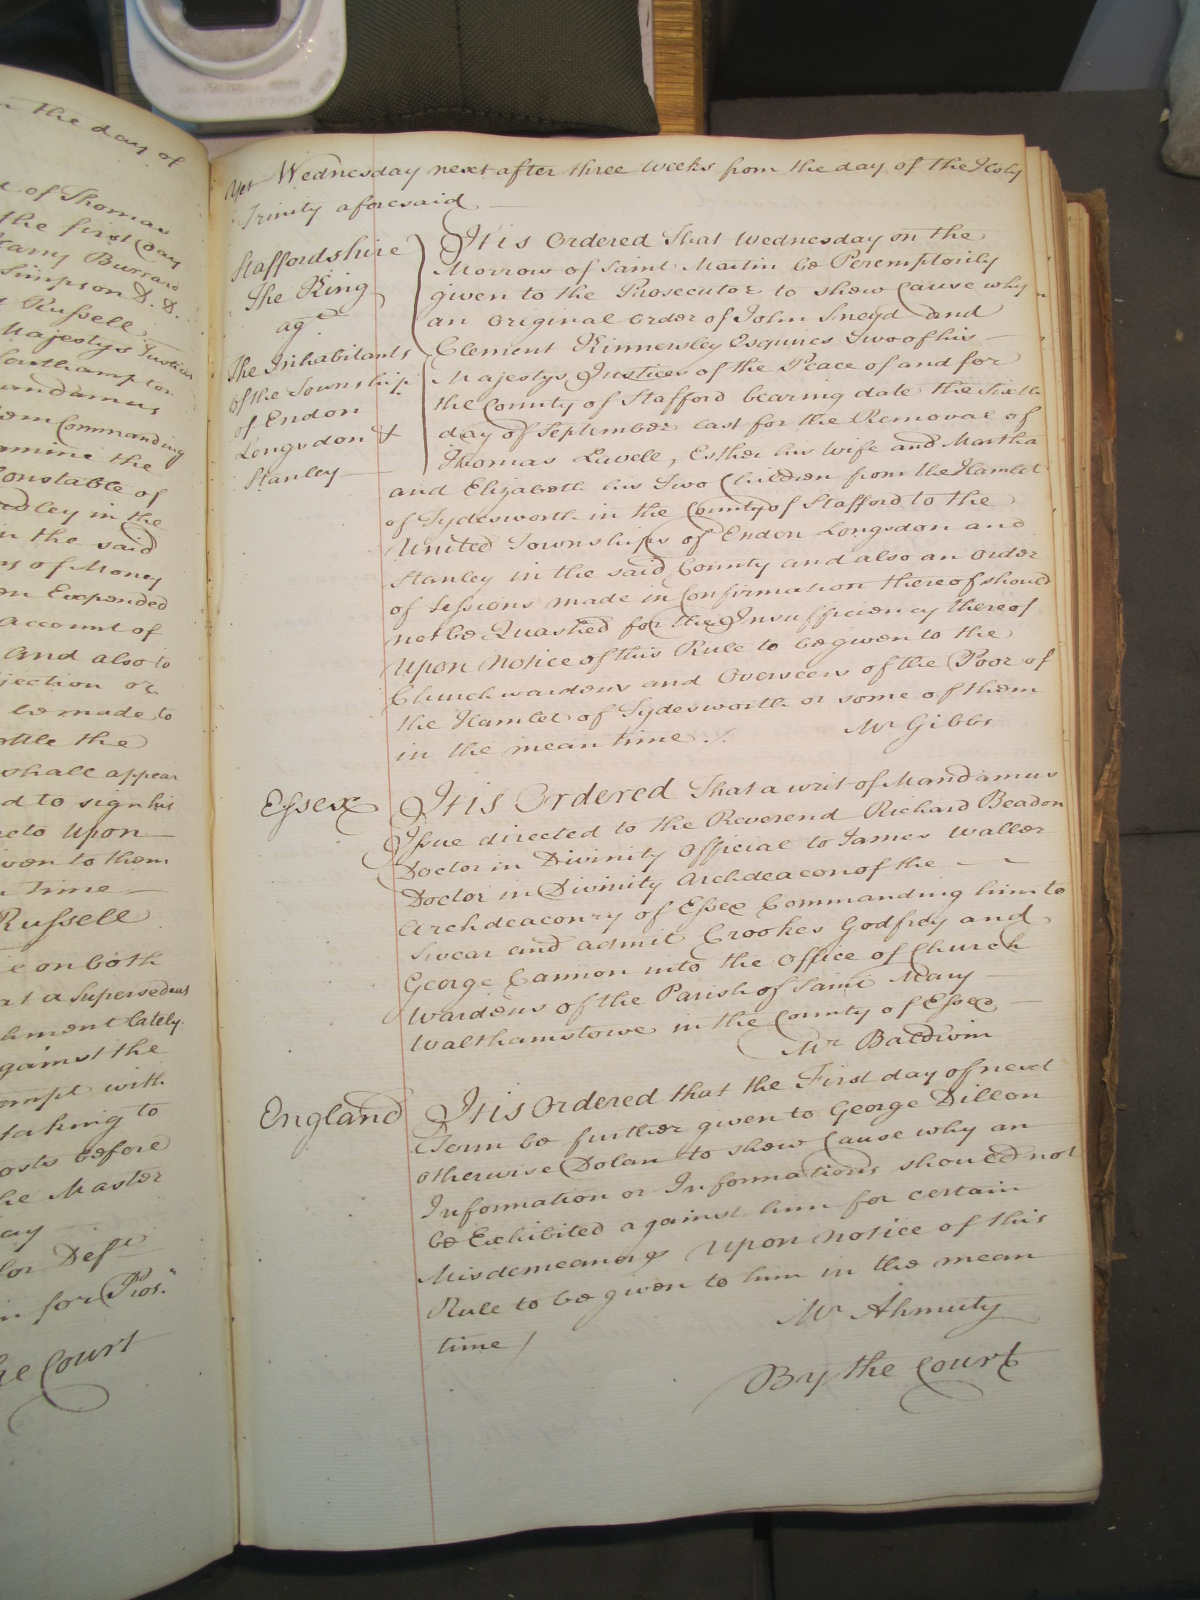 n the day of
d of Thomas
the first Day
Harry Burrard
Simpson D. D.
Russell
Majestys Justices
Southampton
andamus
em Commanding
amine the
Constable of
dley in the
in the said
ms of Money
en Expended
account of
and also to
jection or
be made to
ottle the
shall appear
d to sign his
eto Upon
iven to them
n time
Russell
e on both
at a Supersedeas
hment lately
gainst the
ompt with
taking to
osts before
he Master
ay
for Deft
for Prosr
he Court
Yet Wednesday next after three weeks from the day of the Holy
Trinity aforesaid
Staffordshire
The King
agt
The Inhabitants
of the Township
of Endon
Longsdon &
Stanley
It is Ordered That Wednesday on the
Morrow of Saint Martin be Peremptorily
given to the Prosecutor to shew Cause why
an Original Order of John Sneyd and
Clement Kinnersley Esquires Two of his
Majestys Justices of the Peace of and for
the County of Stafford bearing date the Sixth
day of September last for the Removal of
Thomas Lovell, Esther his wife and Martha
and Elizabeth his Two Children from the Hamlet
of Tydesworth in the County of Stafford to the
United Townships of Endon Longsdon and
Stanley in the said County and also an Order
of Sessions made in Confirmation thereof should
not be Quashed for the Insufficiency thereof
Upon Notice of this Rule to be given to the
Churchwardens and Overseers of the Poor of
the Hamlet of Tydesworth or some of them
in the mean time.
Mr Gibbs
Essex
It is Ordered That a writ of Mandamus
Issue directed to the Reverend Richard Beadon
Doctor in Divinity Official to James Waller
Doctor in Divinity Archdeacon of the
Archdeaconry of Essex Commanding him to
Swear and admit Crookes Godfrey and
George Cannon into the Office of Church
Wardens of the Parish of Saint Mary
Walthamstowe in the County of Essex
Mr Baldwin
England
It is Ordered that the First day of next
Term be further given to George Dillon
otherwise Dolan to shew Cause why an
Information or Informations should not
be Exhibited against him for certain
Misdemeanors Upon Notice of this
Rule to be given to him in the mean
time /
Mr Ahmuty
By the Court